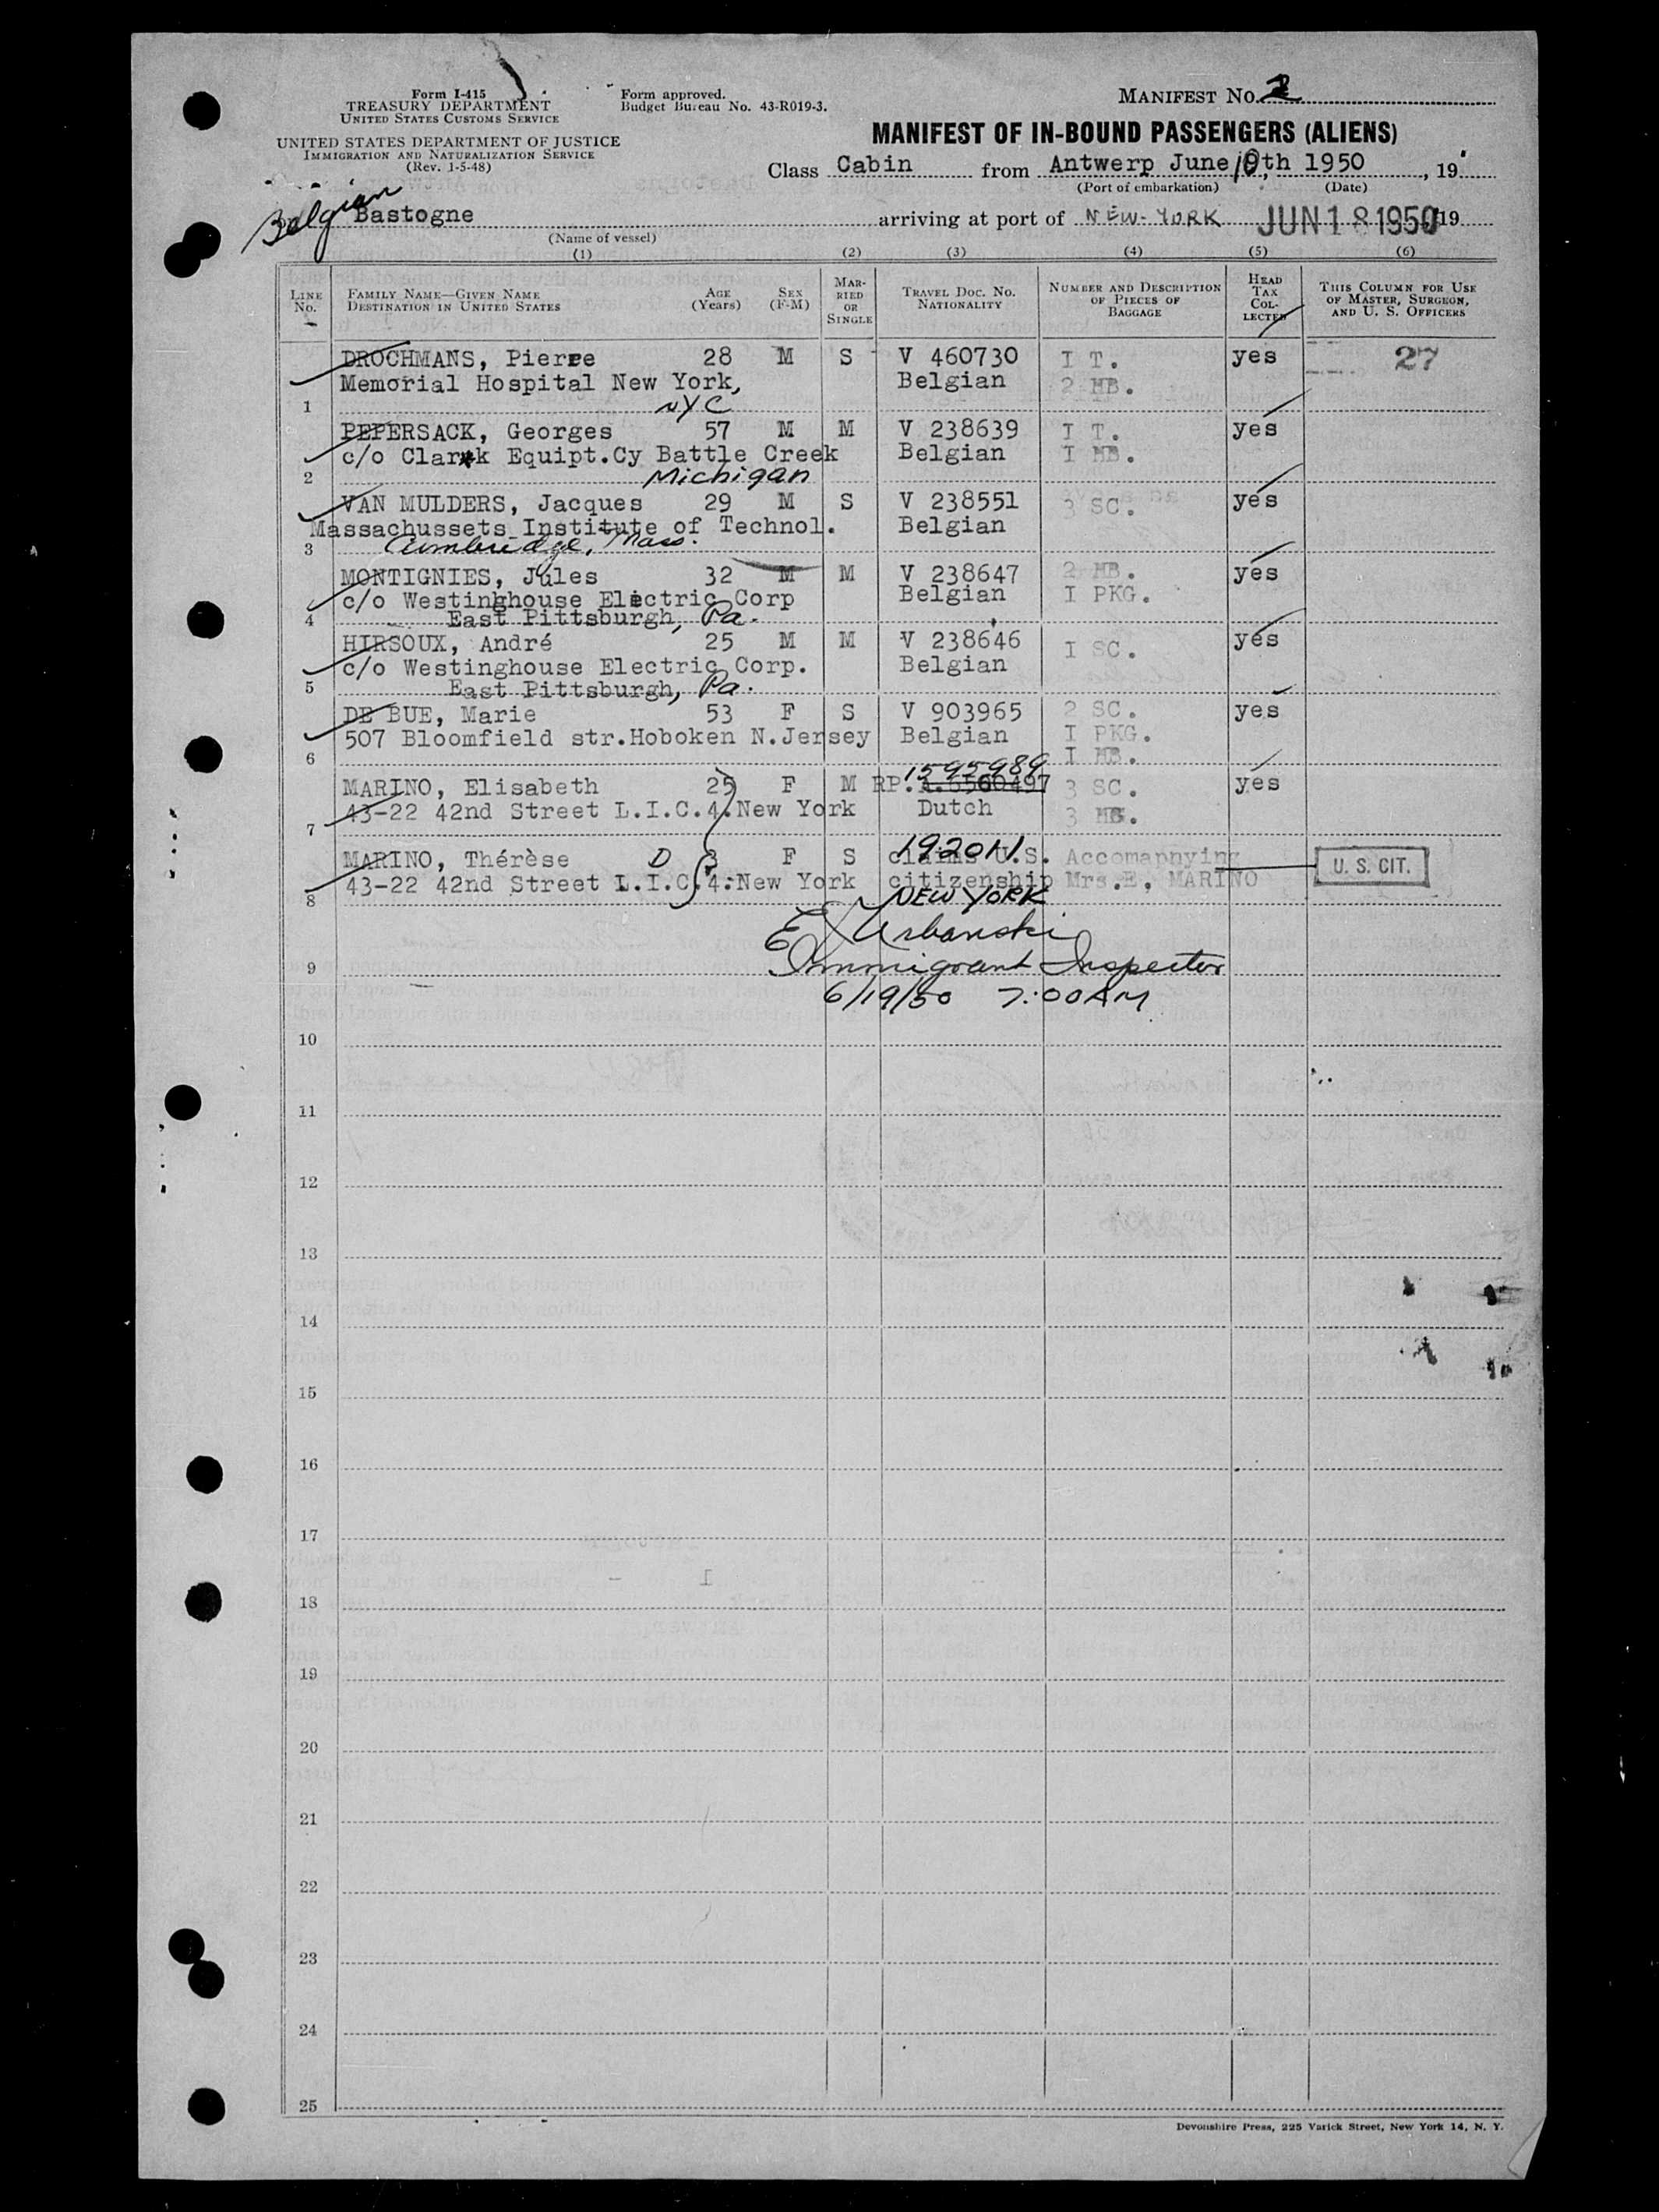 Form I-415
TREASURY DEPARTMENT
UNITED STATES CUSTOMS SERVICE
UNITED STATES DEPARTMENT OF JUSTICE
IMMIGRATION AND NATURALIZATION SERVICE
(Rev. 1-5-48)
Form approved.
Budget Bureau No. 43-R019-3.
MANIFEST No. 2
MANIFEST OF IN-BOUND PASSENGERS (ALIENS)
Class Cabin from Antwerp June 10th 1950, 19
(Port of embarkation) (Date)
Belgian Bastogne arriving at port of NEW-YORK JUN 18 1950 19
(Name of vessel)
(1) (2) (3) (4) (5) (6)
LINE No. FAMILY NAME—GIVEN NAME DESTINATION IN UNITED STATES AGE (Years) SEX (F-M) MARRIED OR SINGLE TRAVEL DOC. No. NATIONALITY NUMBER AND DESCRIPTION OF PIECES OF BAGGAGE HEAD TAX COLLECTED THIS COLUMN FOR USE OF MASTER, SURGEON, AND U. S. OFFICERS
DROCHMANS, Pierre 28 M S V 460730 I T. yes 27
Memorial Hospital New York, Belgian 2 HB.
1 NYC
PEPERSACK, Georges 57 M M V 238639 I T. yes
c/o Clark Equipt.Cy Battle Creek Belgian I HB.
2 Michigan
VAN MULDERS, Jacques 29 M S V 238551 3 SC. yes
Massachussets Institute of Technol. Belgian
3 Cambridge, Mass.
MONTIGNIES, Jules 32 M M V 238647 2 HB. yes
c/o Westinghouse Electric Corp Belgian I PKG.
4 East Pittsburgh, Pa.
HIRSOUX, André 25 M M V 238646 I SC. yes
c/o Westinghouse Electric Corp. Belgian
5 East Pittsburgh, Pa.
DE BUE, Marie 53 F S V 903965 2 SC. yes
507 Bloomfield str.Hoboken N.Jersey Belgian I PKG.
6 I HB.
1595989
MARINO, Elisabeth 25 F M RP. A.6560497 3 SC. yes
43-22 42nd Street L.I.C.4.New York Dutch 3 HB.
7
MARINO, Thérèse D 3 F S claims U.S. Accomapnying U. S. CIT.
43-22 42nd Street L.I.C.4.New York citizenship Mrs.E, MARINO
8 NEW YORK
E Urbanski
9 Immigrant Inspector
6/19/50 7:00AM
10
11
12
13
14
15
16
17
18
19
20
21
22
23
24
25
Devonshire Press, 225 Varick Street, New York 14, N. Y.